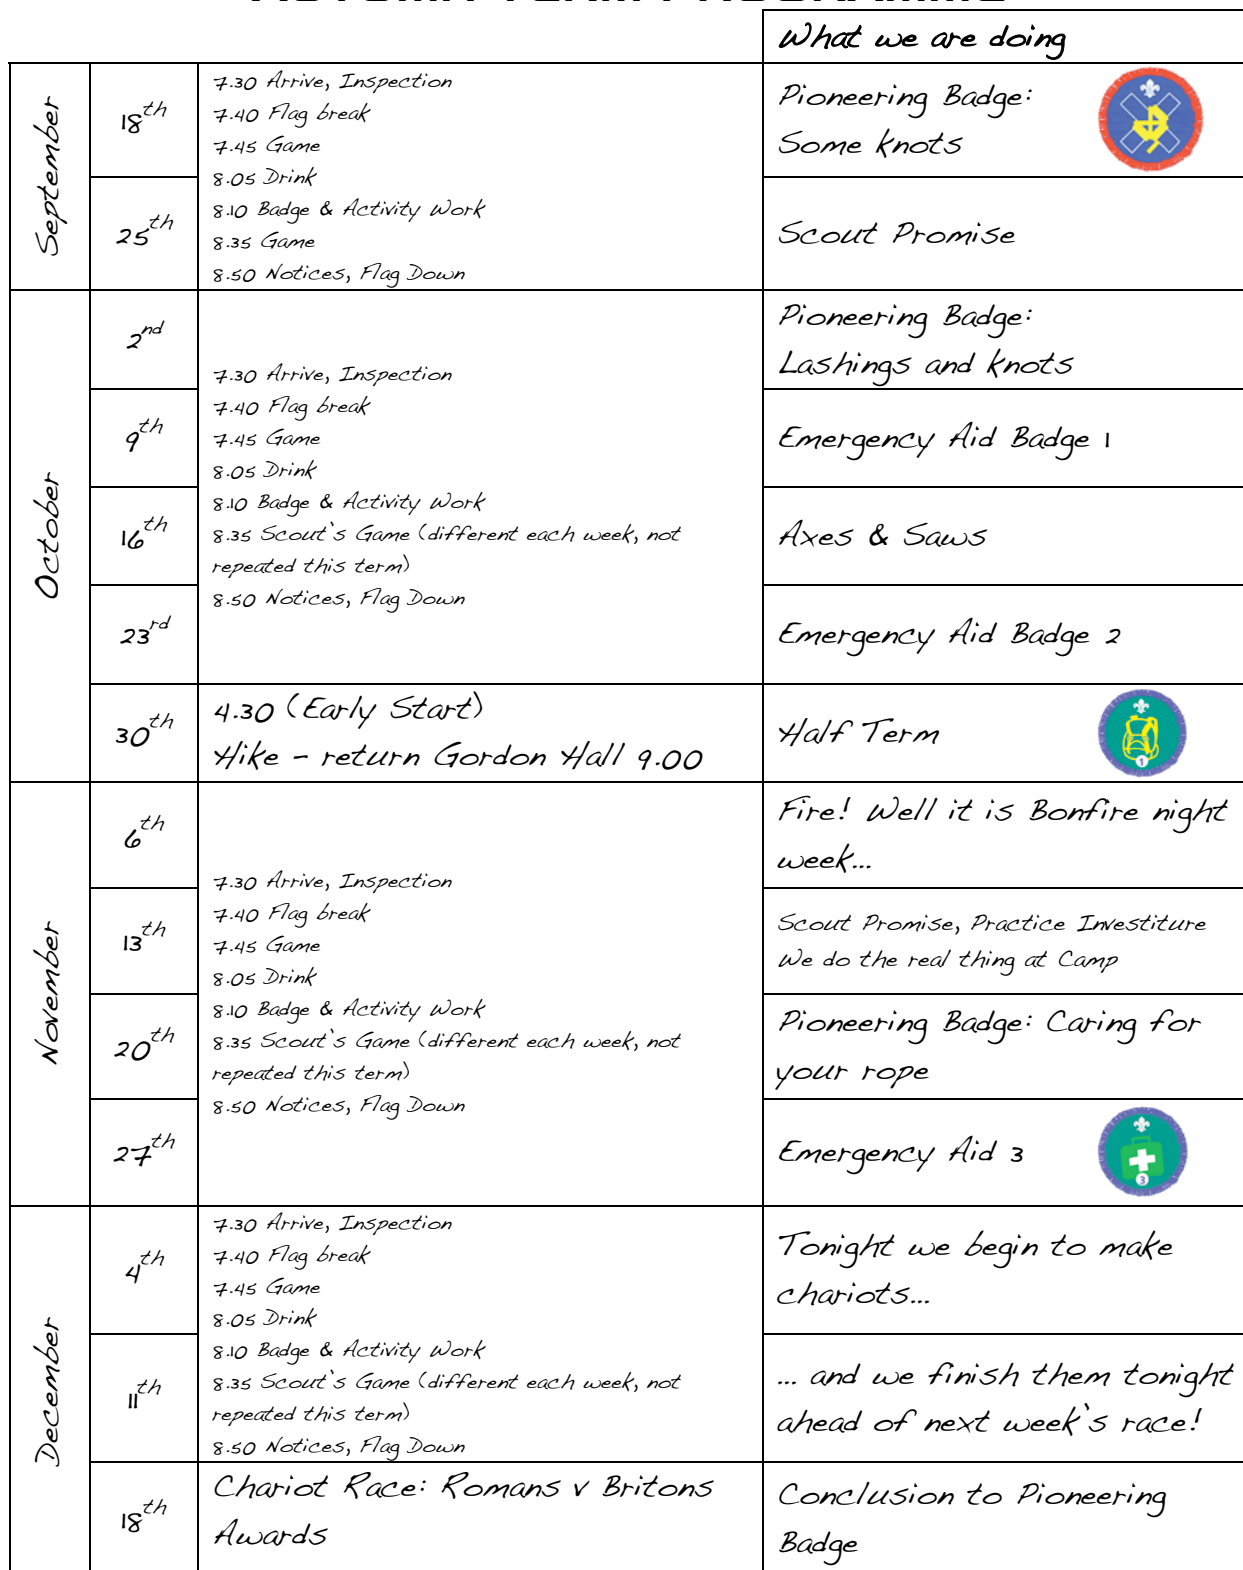 AUTUMN TERM PROGRAMME
What we are doing
September
18th
7.30 Arrive, Inspection
7.40 Flag break
7.45 Game
8.05 Drink
8.10 Badge & Activity Work
8.35 Game
8.50 Notices, Flag Down
Pioneering Badge:
Some knots
25th
Scout Promise
October
2nd
7.30 Arrive, Inspection
7.40 Flag break
7.45 Game
8.05 Drink
8.10 Badge & Activity Work
8.35 Scout's Game (different each week, not
repeated this term)
8.50 Notices, Flag Down
Pioneering Badge:
Lashings and knots
9th
Emergency Aid Badge 1
16th
Axes & Saws
23rd
Emergency Aid Badge 2
30th
4.30 (Early Start)
Hike - return Gordon Hall 9.00
Half Term
1
November
6th
7.30 Arrive, Inspection
7.40 Flag break
7.45 Game
8.05 Drink
8.10 Badge & Activity Work
8.35 Scout's Game (different each week, not
repeated this term)
8.50 Notices, Flag Down
Fire! Well it is Bonfire night
week...
13th
Scout Promise, Practice Investiture
We do the real thing at Camp
20th
Pioneering Badge: Caring for
your rope
27th
Emergency Aid 3
3
December
4th
7.30 Arrive, Inspection
7.40 Flag break
7.45 Game
8.05 Drink
8.10 Badge & Activity Work
8.35 Scout's Game (different each week, not
repeated this term)
8.50 Notices, Flag Down
Tonight we begin to make
chariots...
11th
... and we finish them tonight
ahead of next week's race!
18th
Chariot Race: Romans v Britons
Awards
Conclusion to Pioneering
Badge